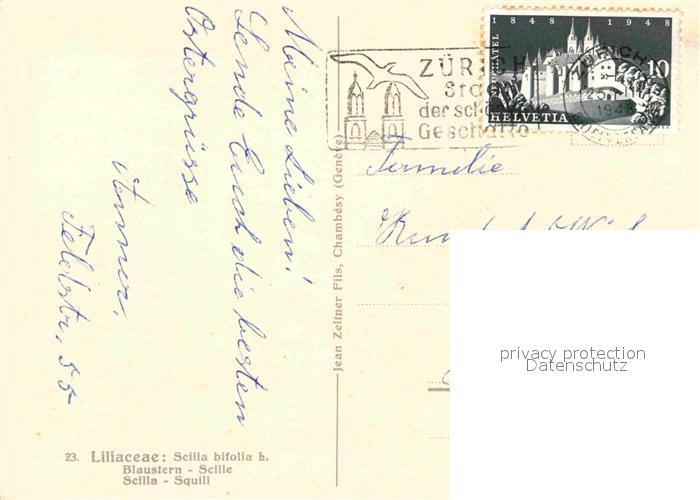 Meine Lieben!
Sende Euch die besten
Ostergrüsse
Feldstr. 55
23. Liliaceae: Scilla bifolia h.
Blaustern - Scille
Scilla - Squill
Jean Zeltner Fils, Chambésy (Genève)
ZÜRICH
der
Geschäfte
1848 1948
NEUCHÂTEL
10
HELVETIA
ZÜRICH
1948
Familie
privacy protection
Datenschutz